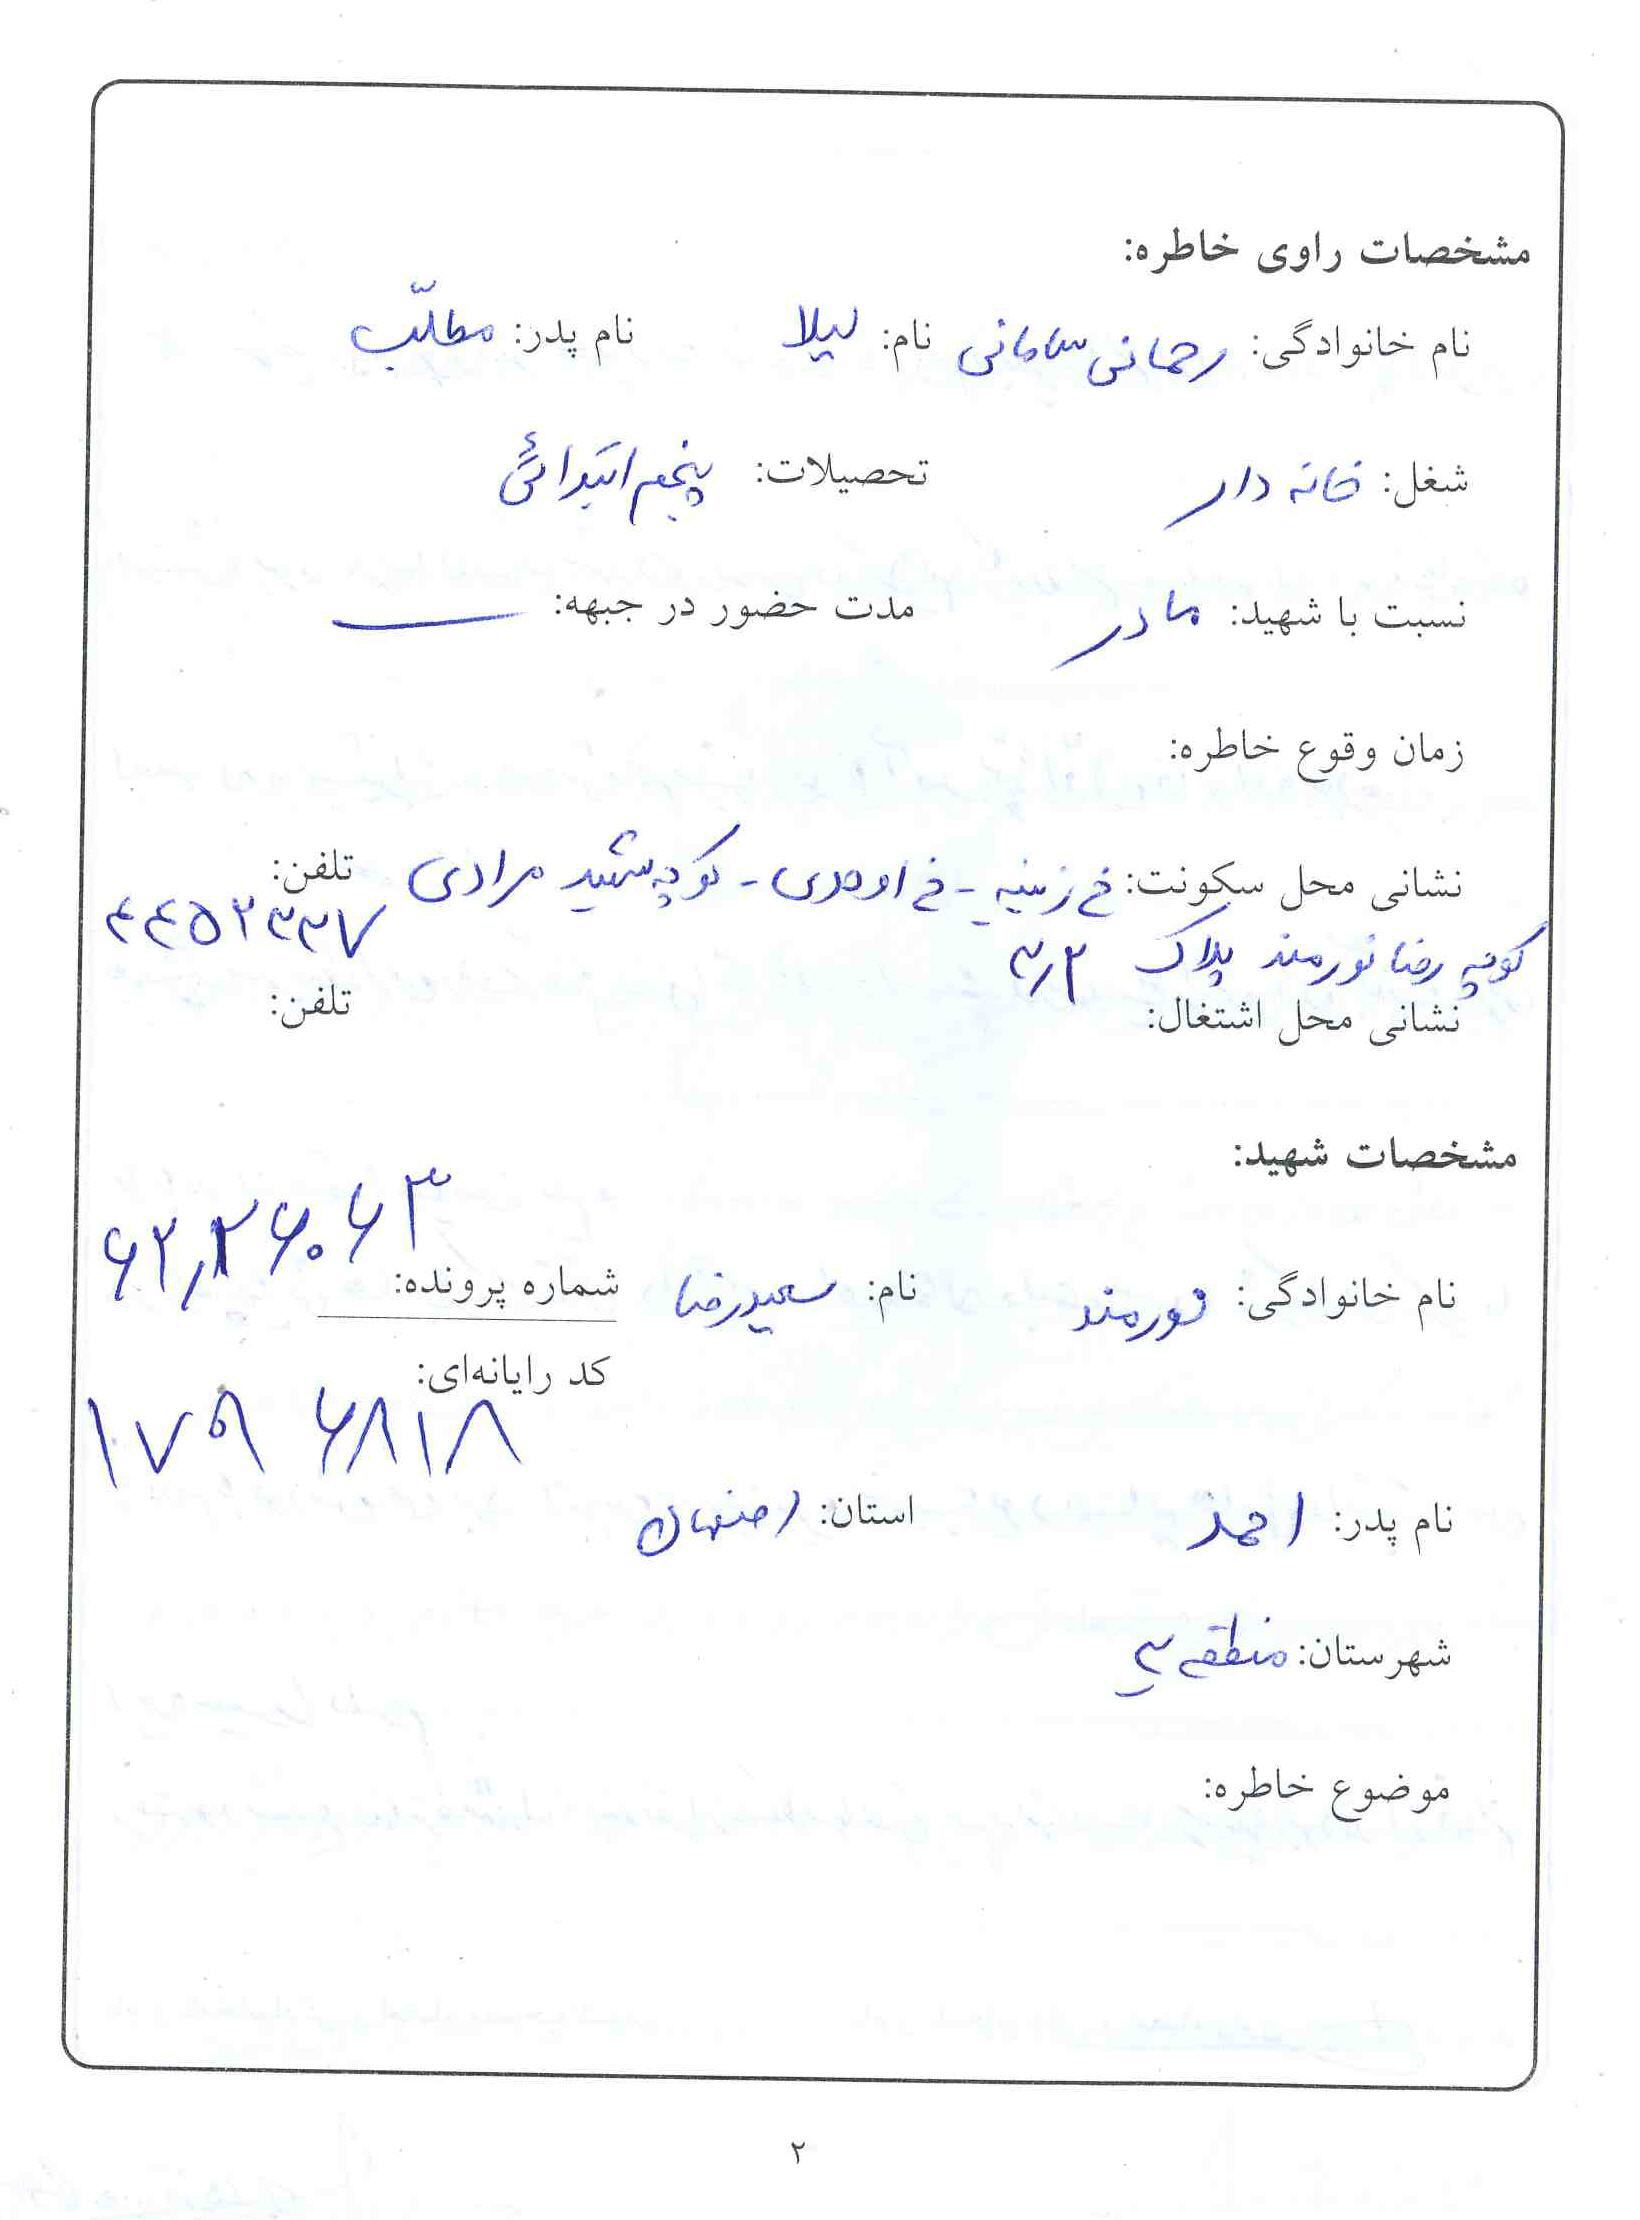 مشخصات راوی خاطره:
نام خانوادگی: رحمانی سامانی نام: لیلا نام پدر: مطلّب
شغل: خانه دار تحصیلات: پنجم ابتدائی
نسبت با شهید: مادر مدت حضور در جبهه: ــ
زمان وقوع خاطره:
نشانی محل سکونت: خ زینبیه - خ اوحدی - کوچه شهید مرادی تلفن:
۴۴۵۲۳۳۷
کوچه رضا نورمند پلاک ۳۲
نشانی محل اشتغال: تلفن:
مشخصات شهید:
۶۲,۲۶۰۶۳
نام خانوادگی: نورمند نام: سعیدرضا شماره پرونده:
کد رایانه‌ای:
۱۷۹۶۸۱۸
نام پدر: احمد استان: اصفهان
شهرستان: منطقه ۳
موضوع خاطره:
۲